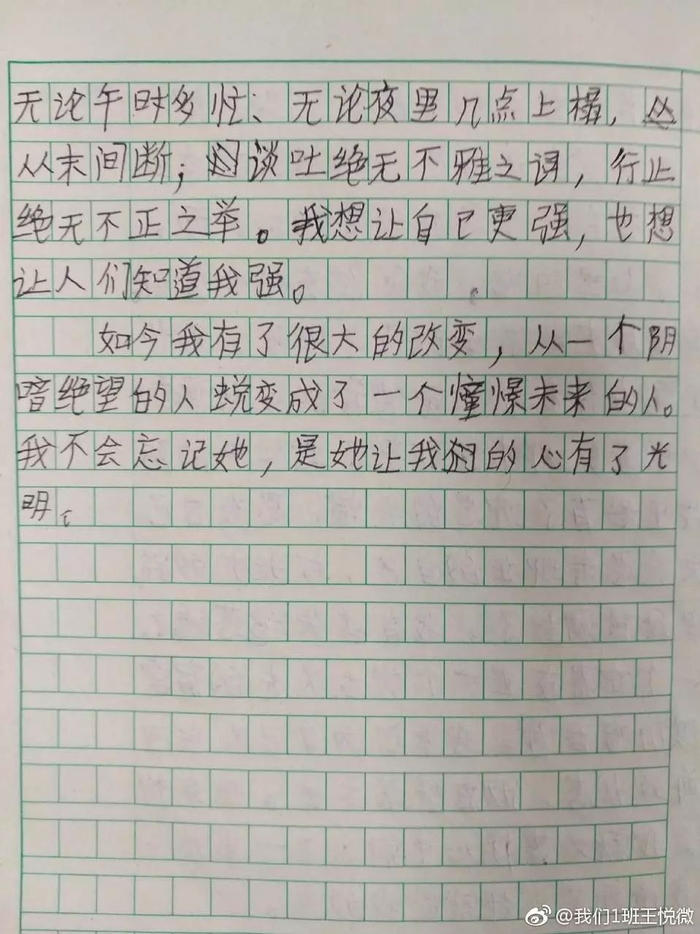 无论午时多忙、无论夜里几点上榻，
从未间断；谈吐绝无不雅之词，行止
绝无不正之举。我想让自己更强，也想
让人们知道我强。
如今我有了很大的改变，从一个阴
暗绝望的人蜕变成了一个憧憬未来的人。
我不会忘记她，是她让我的心有了光
明。
@我们1班王悦微